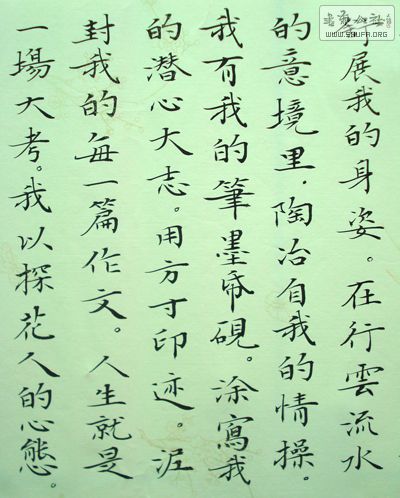 展我的身姿。在行雲流水
的意境里，陶冶自我的情操。
我有我的筆墨帋硯。涂寫我
的潜心大志。用方寸印迹。泥
封我的每一篇作文。人生就是
一場大考。我以探花人的心態。